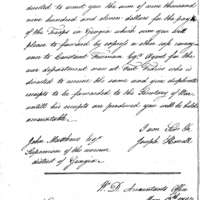 directed to remit you the sum of nine thousand
nine hundred and eleven dollars for the pay
of the Troops in Georgia which sum you will
please to forward by express or other safe convey=
ance to Constant Freeman Esqr. Agent for the
war department now at Fort Fidius who is
directed to receive the same and give duplicate
receipts to be forwarded to the Secretary of War
untill his receipts are produced you will be held
accountable.
I am Sir &c.
John Matthews Esqr. Joseph Howell
Supervisor of the revenue
district of Georgia
W. D. Accountants Office